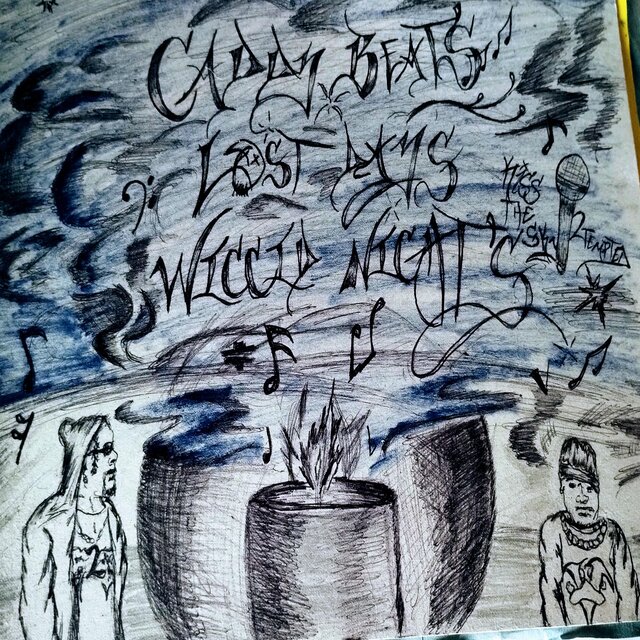 CADDY BEATS
LOST DAYS
WICCID NIGHTS
KISS
THE
SKY
2TEMPTED